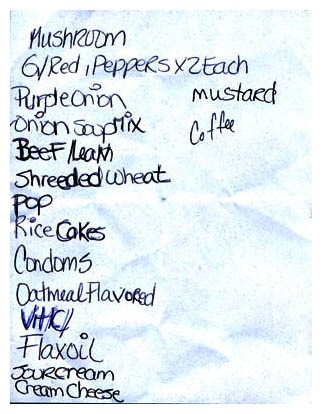 Mushroom
G/Red, Peppers x2 Each
Purple Onion
Mustard
Onion Soup Mix
Coffee
Beef/Lean
Shreeded Wheat
Pop
Rice Cakes
Condoms
Oatmeal Flavored
Vit/C/
Flaxoil
Sour cream
Cream Cheese